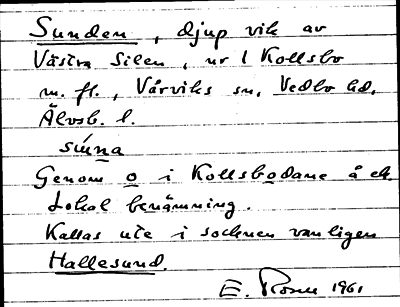 Sunden, djup vik av
Västra Silen, nr 1 Kollsbo
m. fl., Vårviks sn, Vedbo hd,
Älvsb. l.
súna
Genom o i Kollsbodane å ett
lokal benämning.
Kallas ute i socknen vanligen
Hallesund.
E. 1961